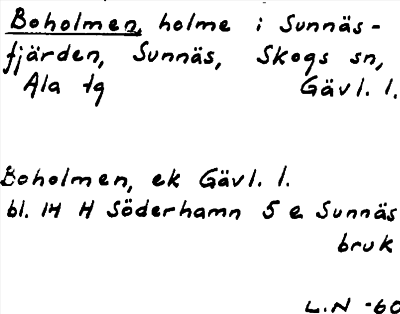 Boholmen, holme i Sunnäs-
fjärden, Sunnäs, Skogs sn,
Ala tg Gävl. l.
Boholmen, ek Gävl. l.
bl. 14 H Söderhamn 5 e Sunnäs
bruk
L.N -60